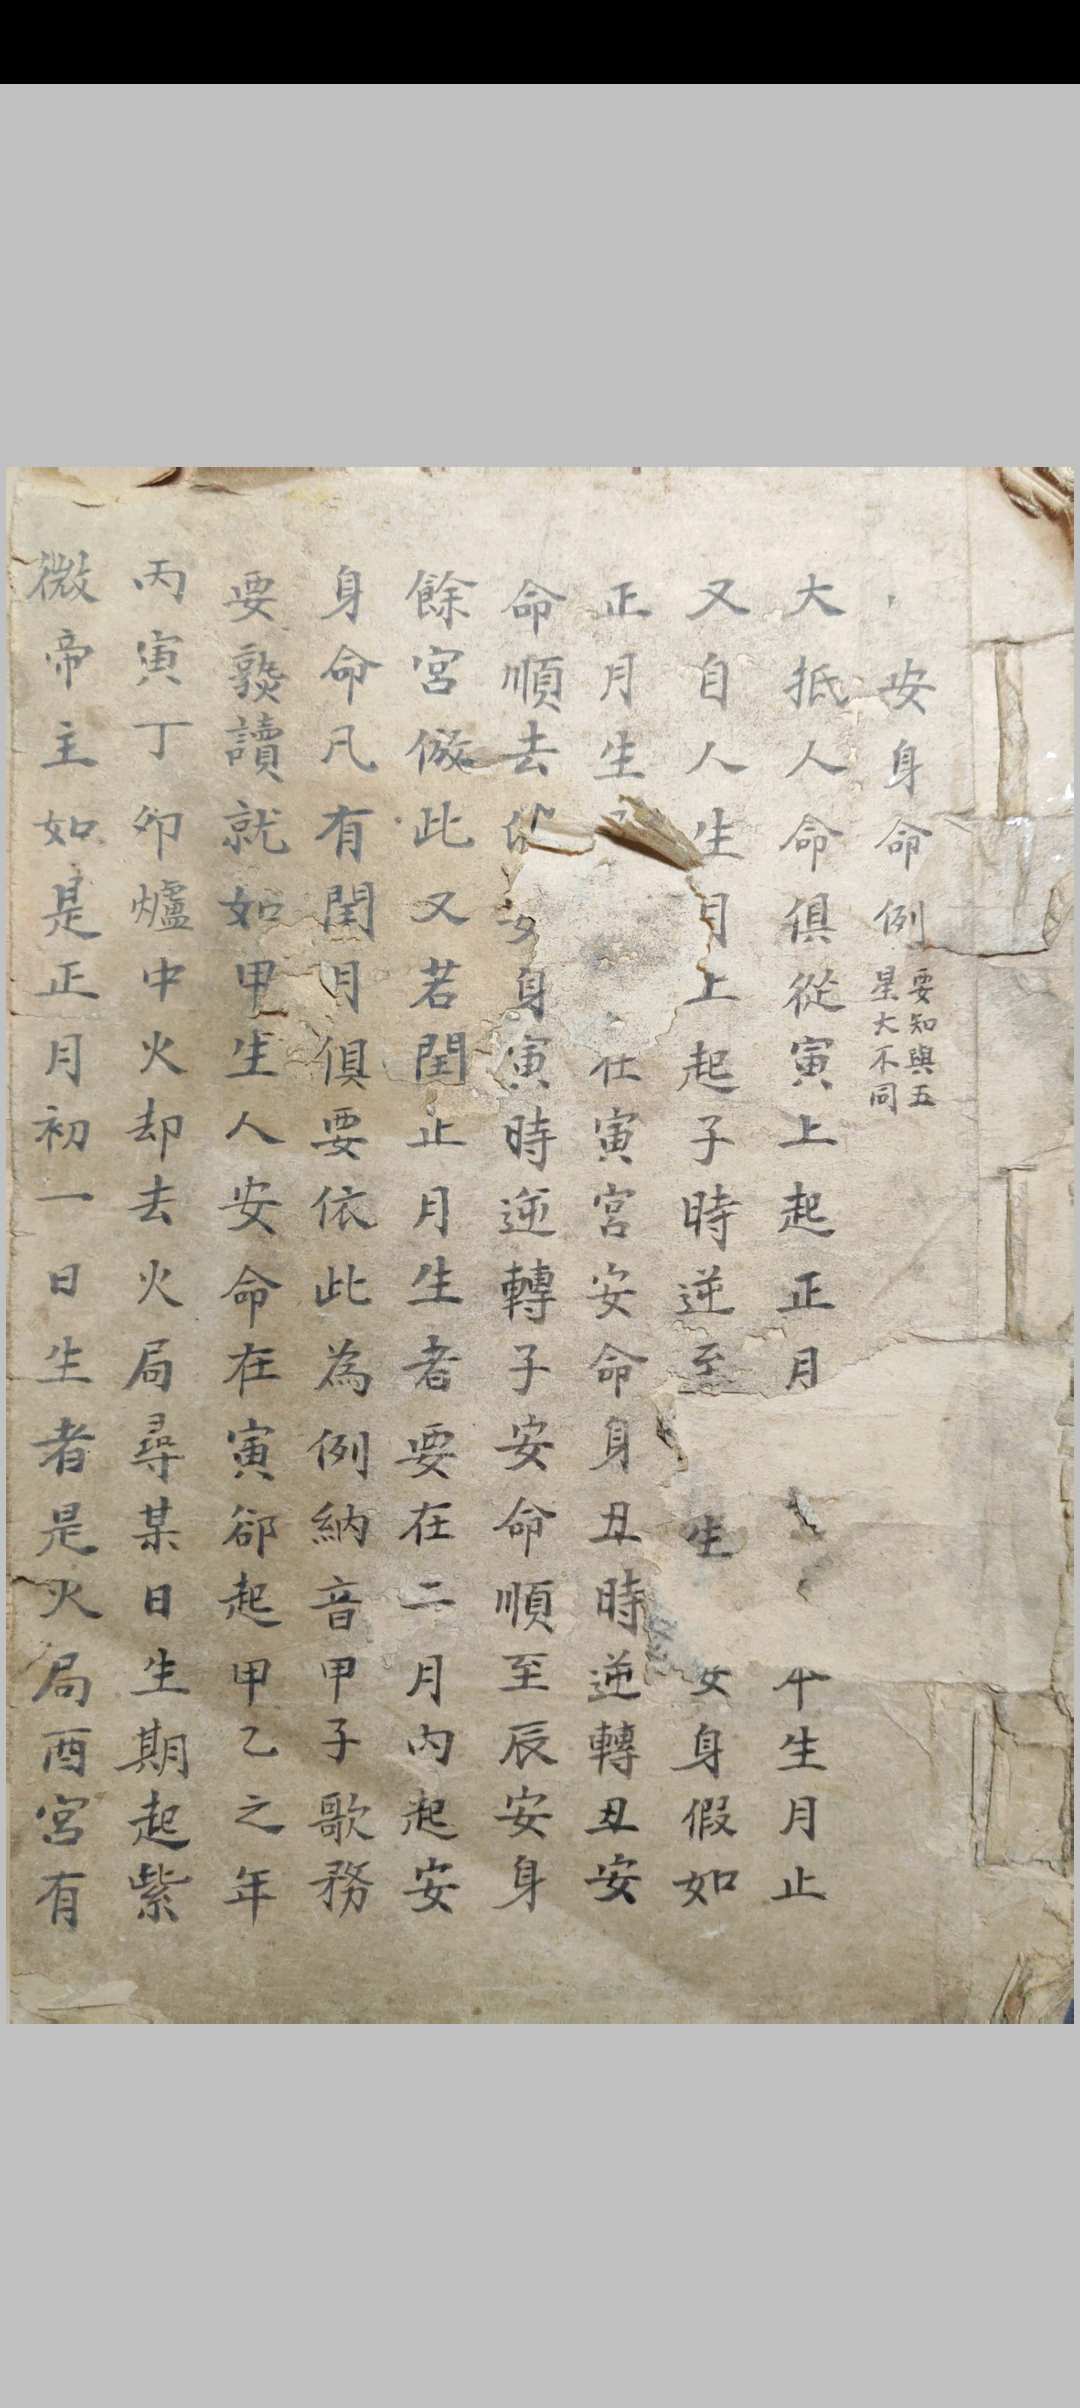 安身命例 要知與五
星大不同
大抵人命俱從寅上起正月生月止
又自人生月上起子時逆至生身假如
正月生在寅宮安命身丑時逆轉丑安
命順去身寅時逆轉子安命順至辰安身
餘宮倣此又若閏正月生者要在二月內起安
身命凡有閏月俱要依此為例納音甲子歌務
要熟讀就如甲生人安命在寅卻起甲乙之年
丙寅丁卯爐中火却去火局尋某日生期起紫
微帝主如是正月初一日生者是火局酉宮有